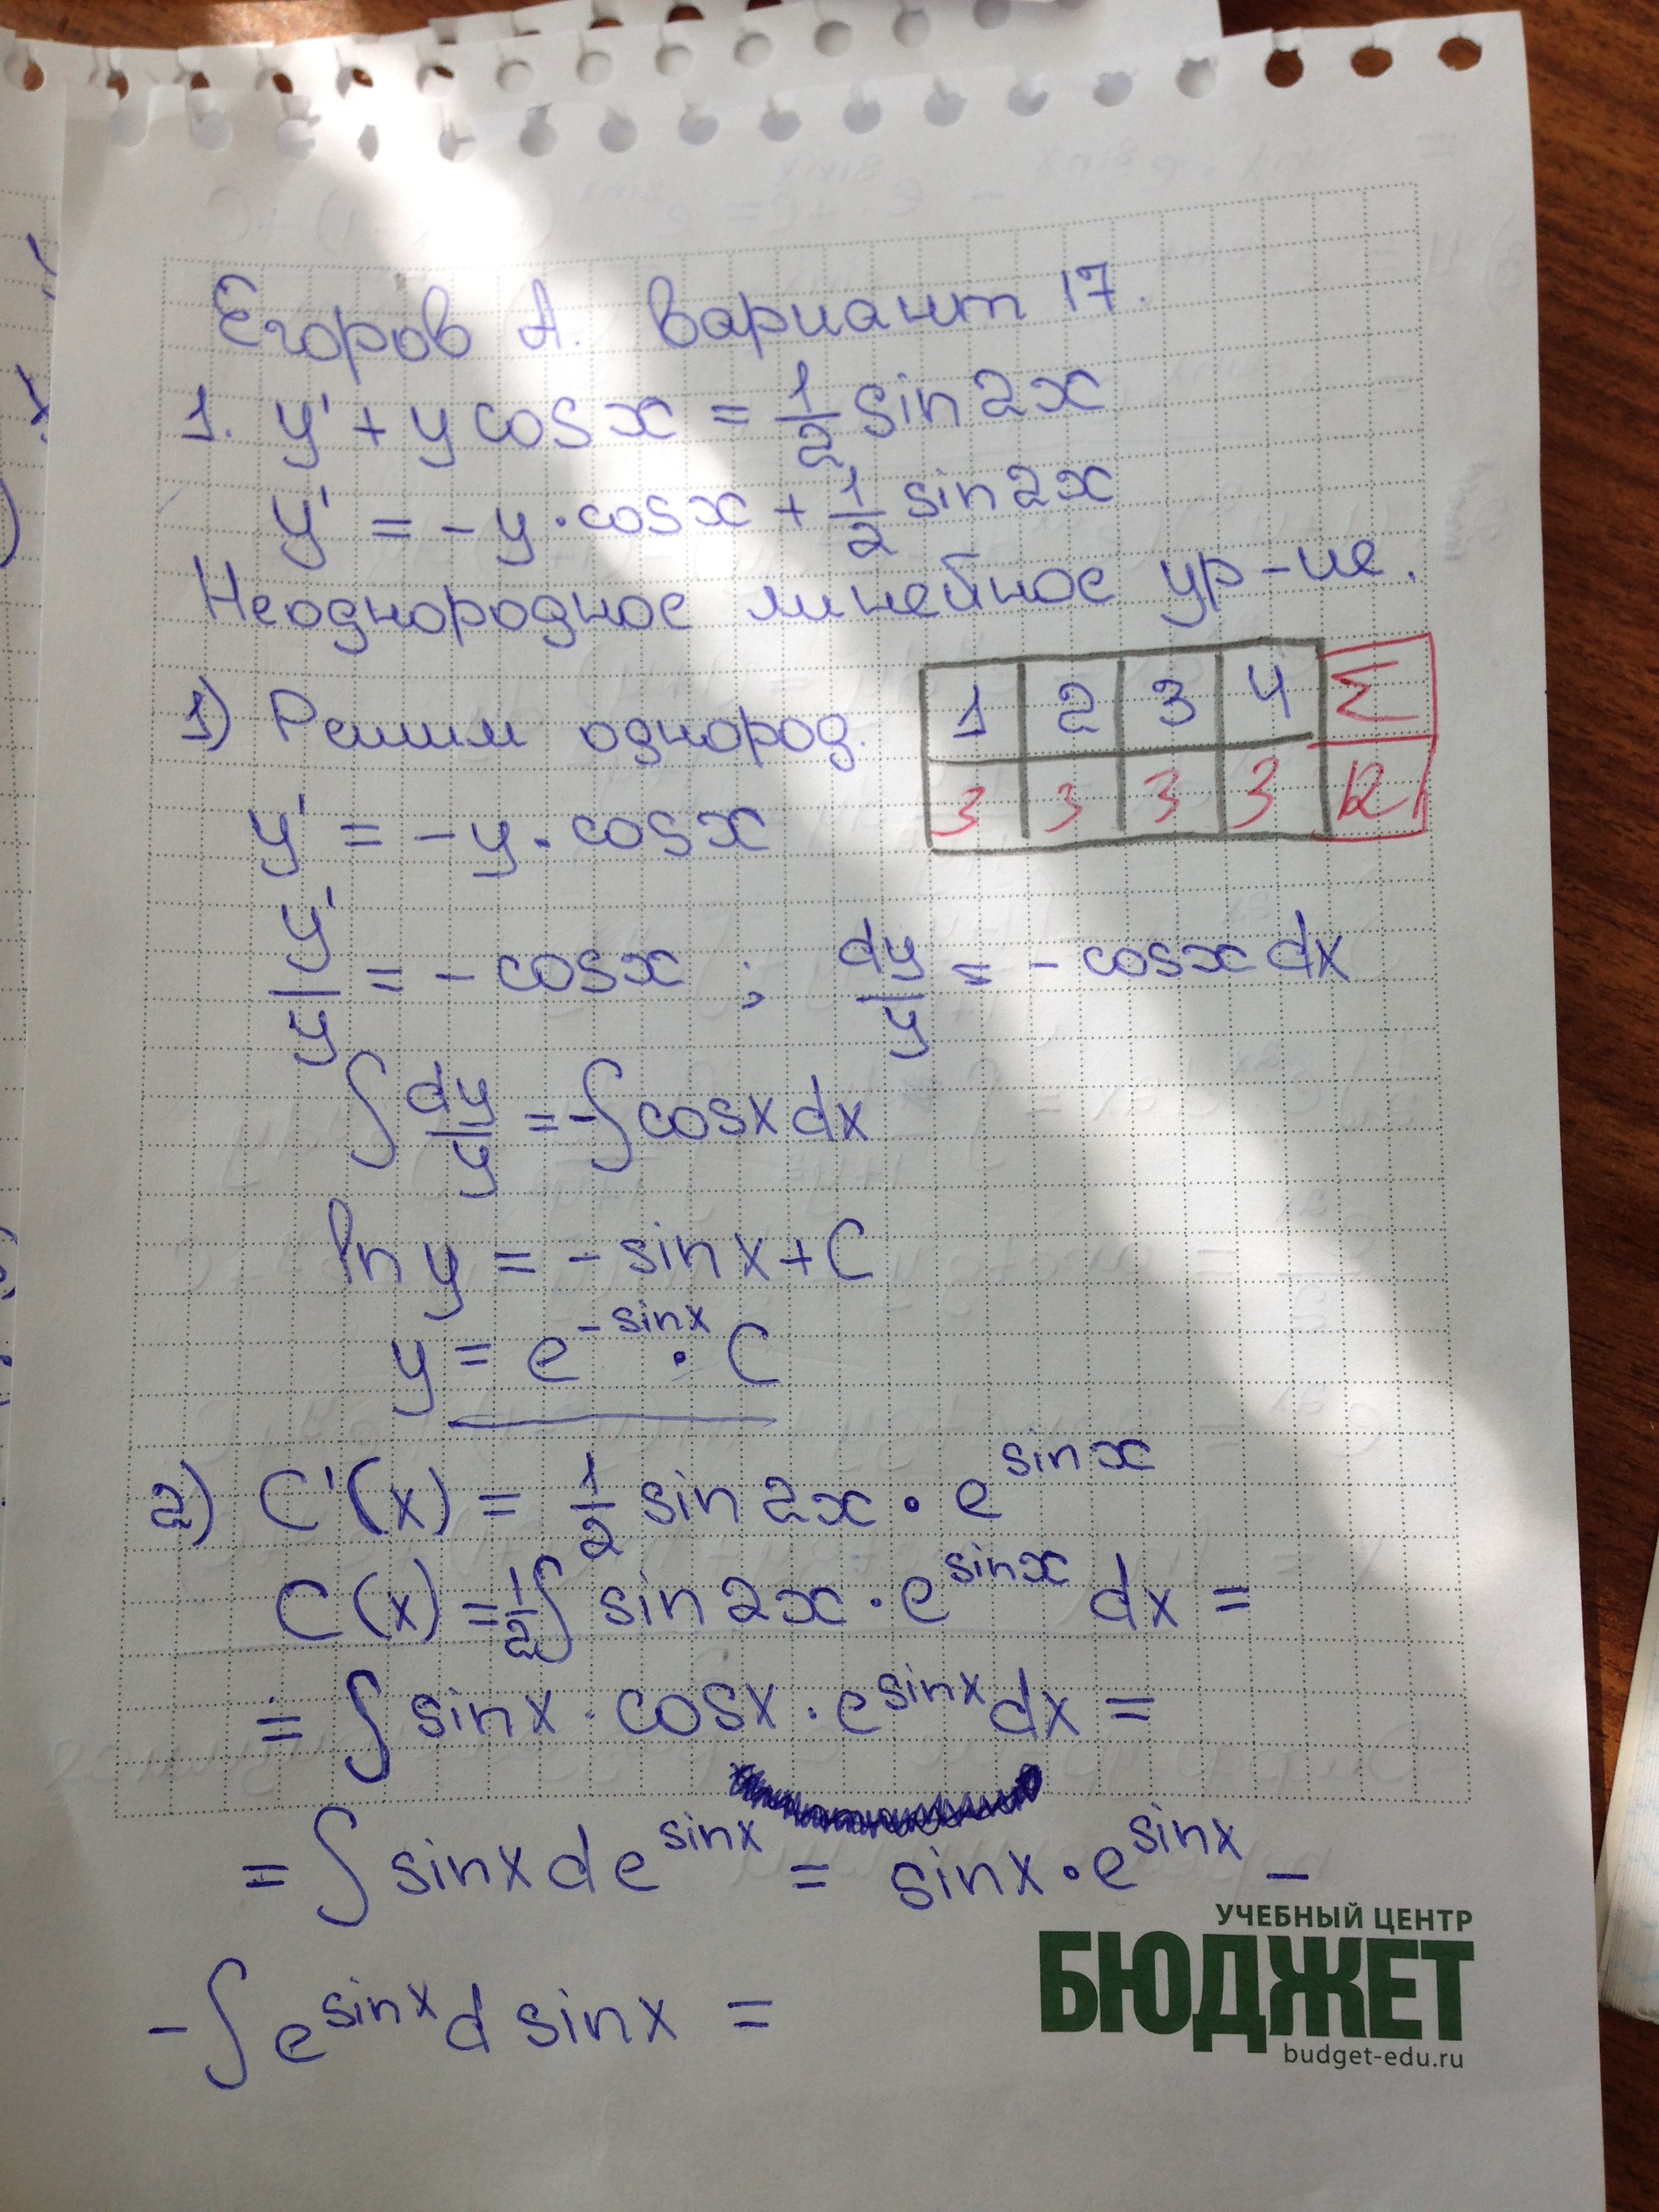 Егоров А. вариант 17.
1. y' + y cos x = 1/2 sin 2x
y' = -y · cos x + 1/2 sin 2x
Неоднородное линейное ур-ие.
1) Решим однород.
1 2 3 4 Σ
3 3 3 3 12
y' = -y · cos x
y'/y = - cos x ; dy/y = - cos x dx
∫ dy/y = -∫ cos x dx
ln y = - sin x + C
y = e^{-sin x} · C
2) C'(x) = 1/2 sin 2x · e^{sin x}
C(x) = 1/2 ∫ sin 2x · e^{sin x} dx =
= ∫ sin x · cos x · e^{sin x} dx =
= ∫ sin x d e^{sin x} = sin x · e^{sin x} -
- ∫ e^{sin x} d sin x =
УЧЕБНЫЙ ЦЕНТР
БЮДЖЕТ
budget-edu.ru